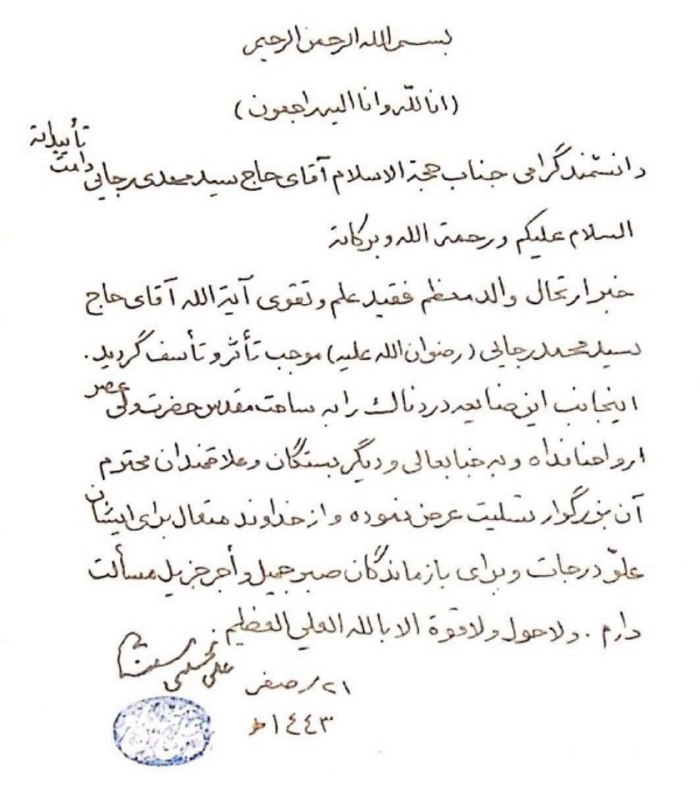 بسم الله الرحمن الرحیم
(انا لله وانا الیه راجعون)
دانشمند گرامی جناب حجة الاسلام آقای حاج سید مهدی رجایی دامت تأییداته
السلام علیکم و رحمة الله و برکاته
خبر ارتحال والد معظم فقید علم و تقوی آیة الله آقای حاج
سید محمد رجایی (رضوان الله علیه) موجب تأثر و تأسف گردید.
اینجانب این ضایعه دردناک را به ساحت مقدس حضرت ولی عصر
ارواحنا فداه و به جنابعالی و دیگر بستگان و علاقمندان محترم
آن بزرگوار تسلیت عرض نموده و از خداوند متعال برای ایشان
علوّ درجات و برای بازماندگان صبر جمیل و أجر جزیل مسألت
دارم. ولا حول ولا قوة الا بالله العلی العظیم.
٢١ / صفر
١٤٤٣ ه